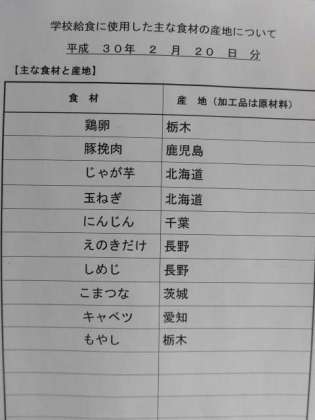 学校給食に使用した主な食材の産地について
平成 30年 2 月 20 日 分
【主な食材と産地】
食 材 産 地（加工品は原材料）
鶏卵 栃木
豚挽肉 鹿児島
じゃが芋 北海道
玉ねぎ 北海道
にんじん 千葉
えのきだけ 長野
しめじ 長野
こまつな 茨城
キャベツ 愛知
もやし 栃木